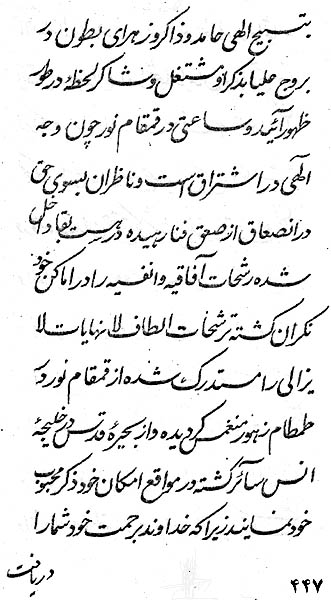 بتسبیح الهی حامد و ذاکر و زهرای بطون در
بروج علیا بذکر او مشتغل و شاکر لحظهٔ در طور
ظهور آئید و ساعتی در قمقام نور چون وجه
الهی در اشتراق است و ناظران بسوی حق
در انصعاق از صعق فنا رهیده در بست بقا داخل
شده رشحات آفاقیه و انفسیه را در اماکن خود
نگران گشته ترشحات الطاف لا نهایات لا
یزالی را مستدرک شده از قمقام نور در
طمطام ظهور منغمس گردیده و از بحیرهٔ قدس در خلیجهٔ
انس سائر گشته در مواقع امکان خود ذکر محبوب
خود نمایند زیرا که خداوند برحمت خود شما را
دریافت
۴۴۷